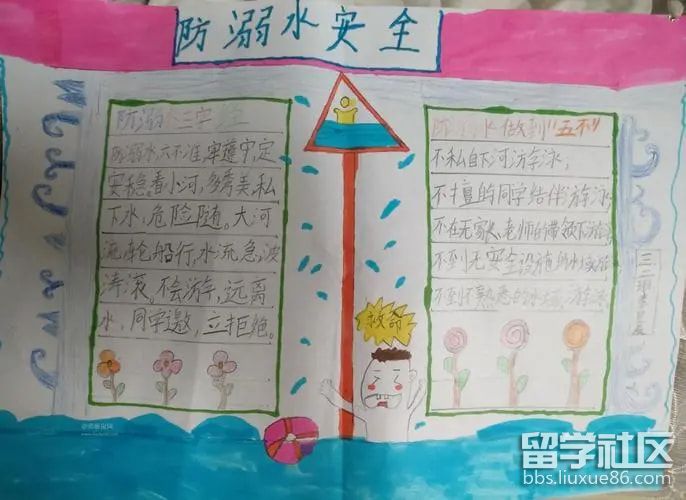 防溺水安全
防溺水三字经
防溺水,六不准,牢遵守,定
安稳。看小河,多秀美,私
下水,危险随。大河
流,轮船行,水流急,波
涛滚。不会游,远离
水,同学邀,立拒绝。
救命
防溺水做到"五不"
不私自下河游泳;
不擅自的同学结伴游泳;
不在无家人、老师的带领下游泳
不到无安全设施的水域游泳
不到不熟悉的水域游泳
三二班
留学社区
bbs.liuxue86.com